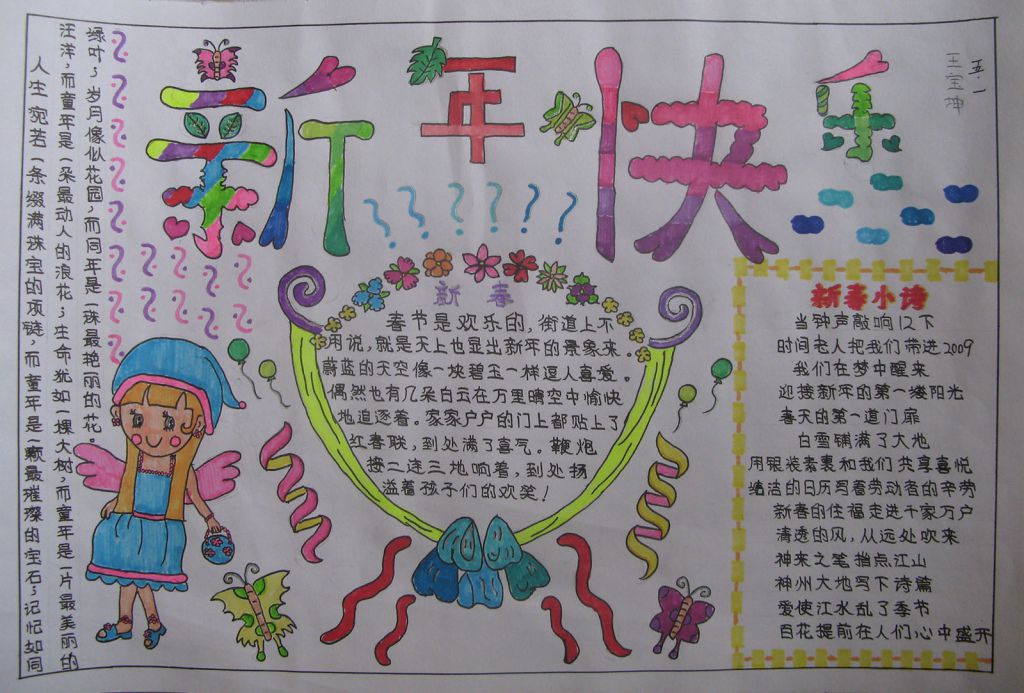 新年快乐
五.一
王宝
人生宛若一条缀满珠宝的项链,而童年是一颗最璀璨的宝石;记忆如同
汪洋,而童年是一朵最动人的浪花;生命犹如一棵大树,而童年是一片最美丽的
绿叶;岁月像似花园,而同年是一株最艳丽的花。
新春
春节是欢乐的,街道上不
用说,就是天上也显出新年的景象来。
蔚蓝的天空像一块碧玉一样逗人喜爱。
偶然也有几朵白云在万里晴空中愉快
地追逐着。家家户户的门上都贴上了
红春联,到处满了喜气。鞭炮
接二连三地响着,到处扬
溢着孩子们的欢笑!
新春小诗
当钟声敲响12下
时间老人把我们带进2009
我们在梦中醒来
迎接新年的第一缕阳光
春天的第一道门扉
白雪铺满了大地
用银装素裹和我们共享喜悦
洁的日历写着劳动者的辛劳
新春的住福走进千家万户
清透的风,从远处吹来
神来之笔指点江山
神州大地写下诗篇
爱使江水乱了季节
百花提前在人们心中盛开